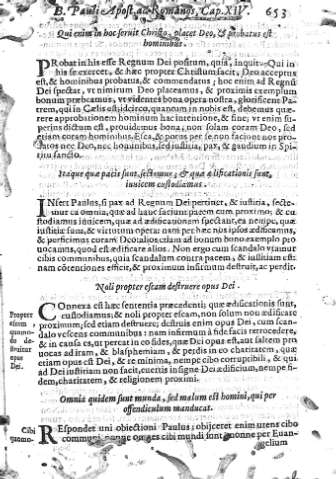 B. Pauli Apost. ad Romanos, Cap. XIV. 653
Qui enim in hoc seruit Christo, placet Deo, & probatus est
hominibus.
PRobat in his esse Regnum Dei positum, quia, inquit, Qui in
his se exercet, & hæc propter Christum facit, Deo acceptus
est, & hominibus probatus, & commendatus; hoc enim ad Regnū
Dei spectat, vt nimirum Deo placeamus, & proximis exemplum
bonum præbeamus, vt videntes bona opera nostra, glorificent Pa-
trem, qui in Cœlis est; idcirco, quantum in nobis est, debemus quæ-
rere approbationem hominum hac intentione, & fine; vt enim su-
perius dictum est, prouideamus bona; non solum coram Deo, sed
etiam coram hominibus. Esca, & potus per se non faciunt nos pro-
batos nec Deo, nec hominibus, sed iustitia, pax, & gaudium in Spi-
ritu sancto.
Itaque quæ pacis sunt, sectemur; & quæ ædificationis sunt,
inuicem custodiamus.
INfert Paulus, si pax ad Regnum Dei pertinet, & iustitia, secte-
mur ea omnia, quæ ad hanc faciunt pacem cum proximo; & cu-
stodiamus inuicem, quæ ad ædificationem spectant, ea nempe, quæ
iustitiæ sunt, & virtutum opera: nam per hæc nos ipsos ædificamus,
& perficimus coram Deo; alios etiam ad bonum bono exemplo pro
uocamus, quod est ædificare alios. Non ergo cum scandalo vtamur
cibis communibus, quia scandalum contra pacem, & iustitiam est:
nam cōtentiones efficit, & proximum infirmum destruit, ac perdit.
Noli propter escam destruere opus Dei.
Propter
escam
quomo-
do de-
struitur
opus
Dei.
COnnexa est hæc sententia præcedenti; quæ ædificationis sunt,
custodiamus; & noli propter escam, non solum non ædificare
proximum, sed etiam destruere; destruis enim opus Dei, cum scan-
dalo vesceris communibus: nam infirmum à fide facis retrocedere,
& in causa es, vt percat in eo fides, quæ Dei opus est, aut saltem pro
uocas ad iram, & blasphemiam, & perdis in eo charitatem, quæ
etiam opus est Dei, & re minima, nempe cibo corruptibili, & qui
ad Dei iustitiam non facit, euertis insigne Dei ædificium, nempe fi-
dem, charitatem, & religionem proximi.
Omnia quidem sunt munda, sed malum est homini, qui per
offendiculum manducat.
Cibi
quomo-
REspondet vni obiectioni Paulus; obijceret enim vtens cibo
communi, nonne omnes cibi mundi sunt? nonne per Euan-
gelium